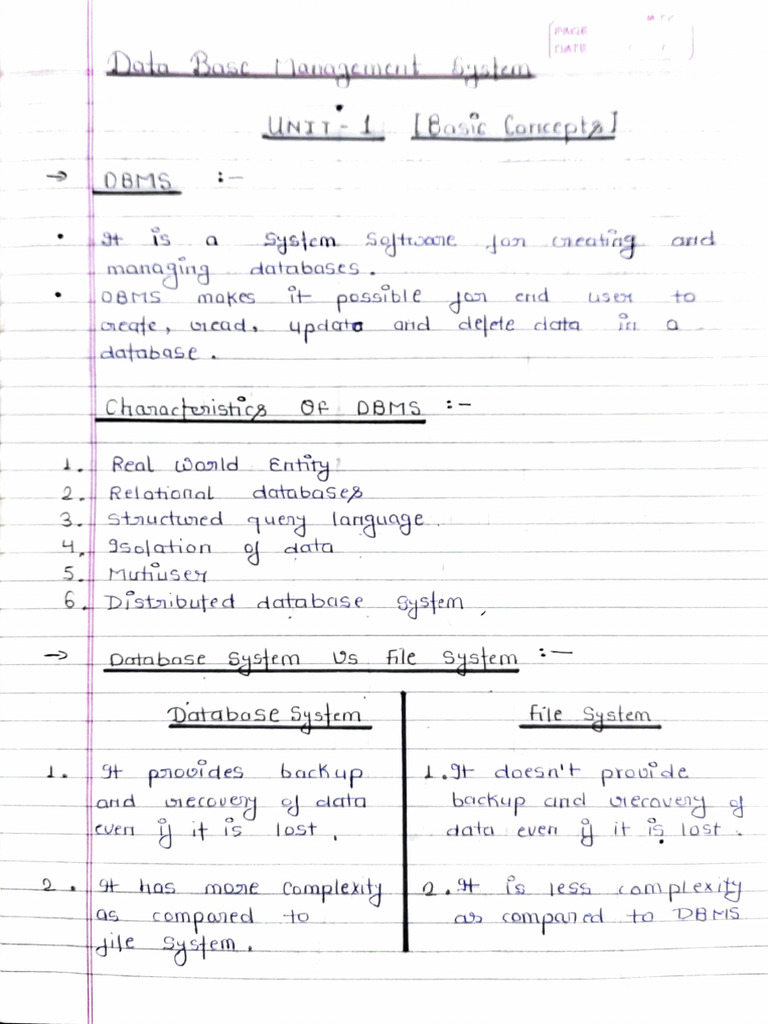 PAGE
DATE
Data Base Management System
UNIT-1 [Basic Concepts]
→ DBMS :-
• It is a system software for creating and
managing databases.
• DBMS makes it possible for end user to
create, read, update and delete data in a
database.
Characteristics OF DBMS :-
1. Real World Entity
2. Relational databases
3. Structured query language
4. Isolation of data
5. Mutiuser
6. Distributed database system
→ Database System Vs File System :-
Database System
1. It provides backup
and recovery of data
even if it is lost.
2. It has more complexity
as compared to
file System.
File System
1. It doesn't provide
backup and recovery of
data even if it is lost.
2. It is less complexity
as compared to DBMS